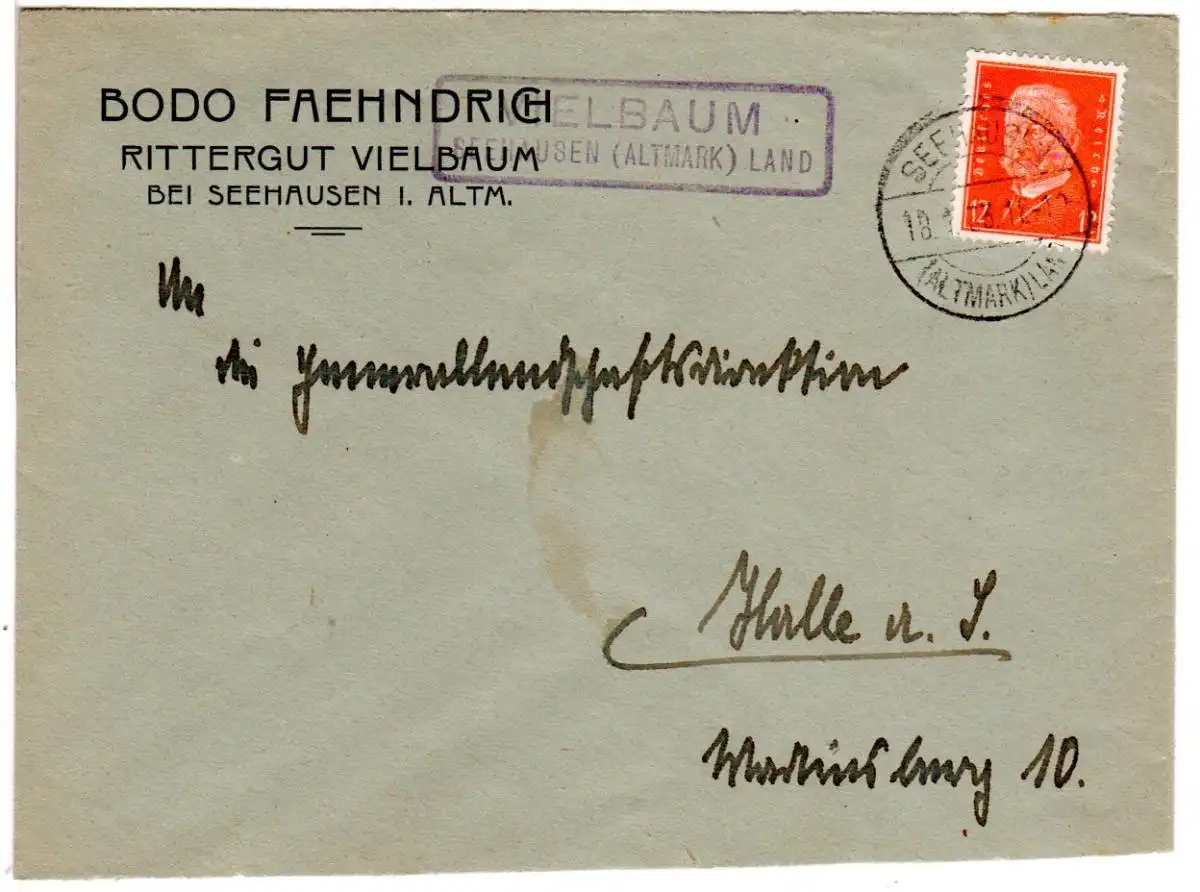 BODO FAEHNDRICH
RITTERGUT VIELBAUM
BEI SEEHAUSEN I. ALTM.
VIELBAUM
SEEHAUSEN (ALTMARK) LAND
Deutsches Reich
12 12
SEEHAUSEN
(ALTMARK) LAND
An
die Generallandschaftsdirektion
Halle a. S.
Martinsberg 10.